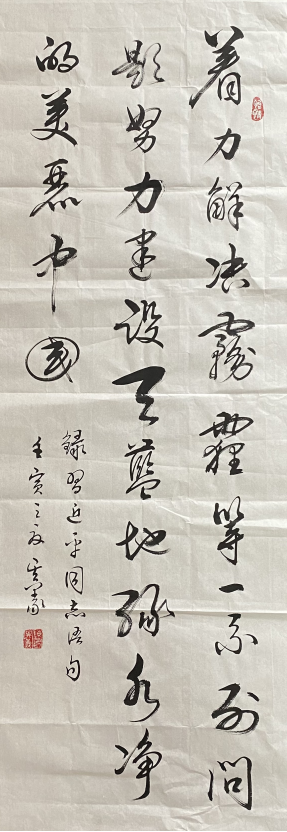 着力解决霧霾等一系列问
题努力建设天藍地绿水净
的美丽中国
録習近平同志语句
壬寅之秋